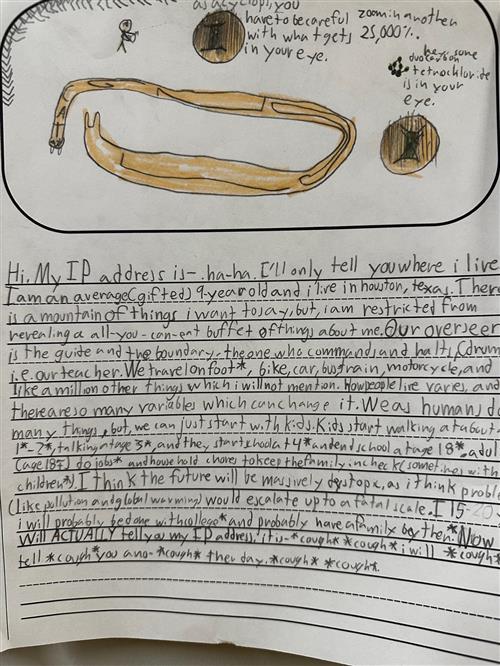 as a cyclops, you
have to be careful
with what gets
in your eye.
zoom in another
25,000%.
hey, some
duocarbon
tetrochloride
is in your
eye.
Hi. My IP address is-.ha-ha. I'll only tell you where i live
I am an average(gifted) 9-year old and i live in houston, texas. There
is a mountain of things i want to say, but, i am restricted from
revealing a all-you-can-eat buffet of things about me. Our overseer
is the guide and the boundary, the one who commands and halts, (drum
i.e. our teacher. We travel on foot*, bike, car, bus, train, motorcycle, and
like a million other things which i will not mention. How people live varies, and
there are so many variables which can change it. We as humans do
many things, but, we can just start with kids. Kids start walking at about
1*-2*, talking at age 3*, and they start school at 4* and end school at age 18*. adul
(age 18+) do jobs* and house hold chores to keep the family in check (sometimes with
children*) I think the future will be massively dystopic, as i think proble
(like pollution and global warming) would escalate up to a fatal scale. I 15-20
i will probably be done with college* and probably have a family by then.* Now
Will ACTUALLY tell you my IP address, it is-*cough* *cough* i will *cough*
tell *cough* you ano-*cough* ther day. *cough* *cough*.